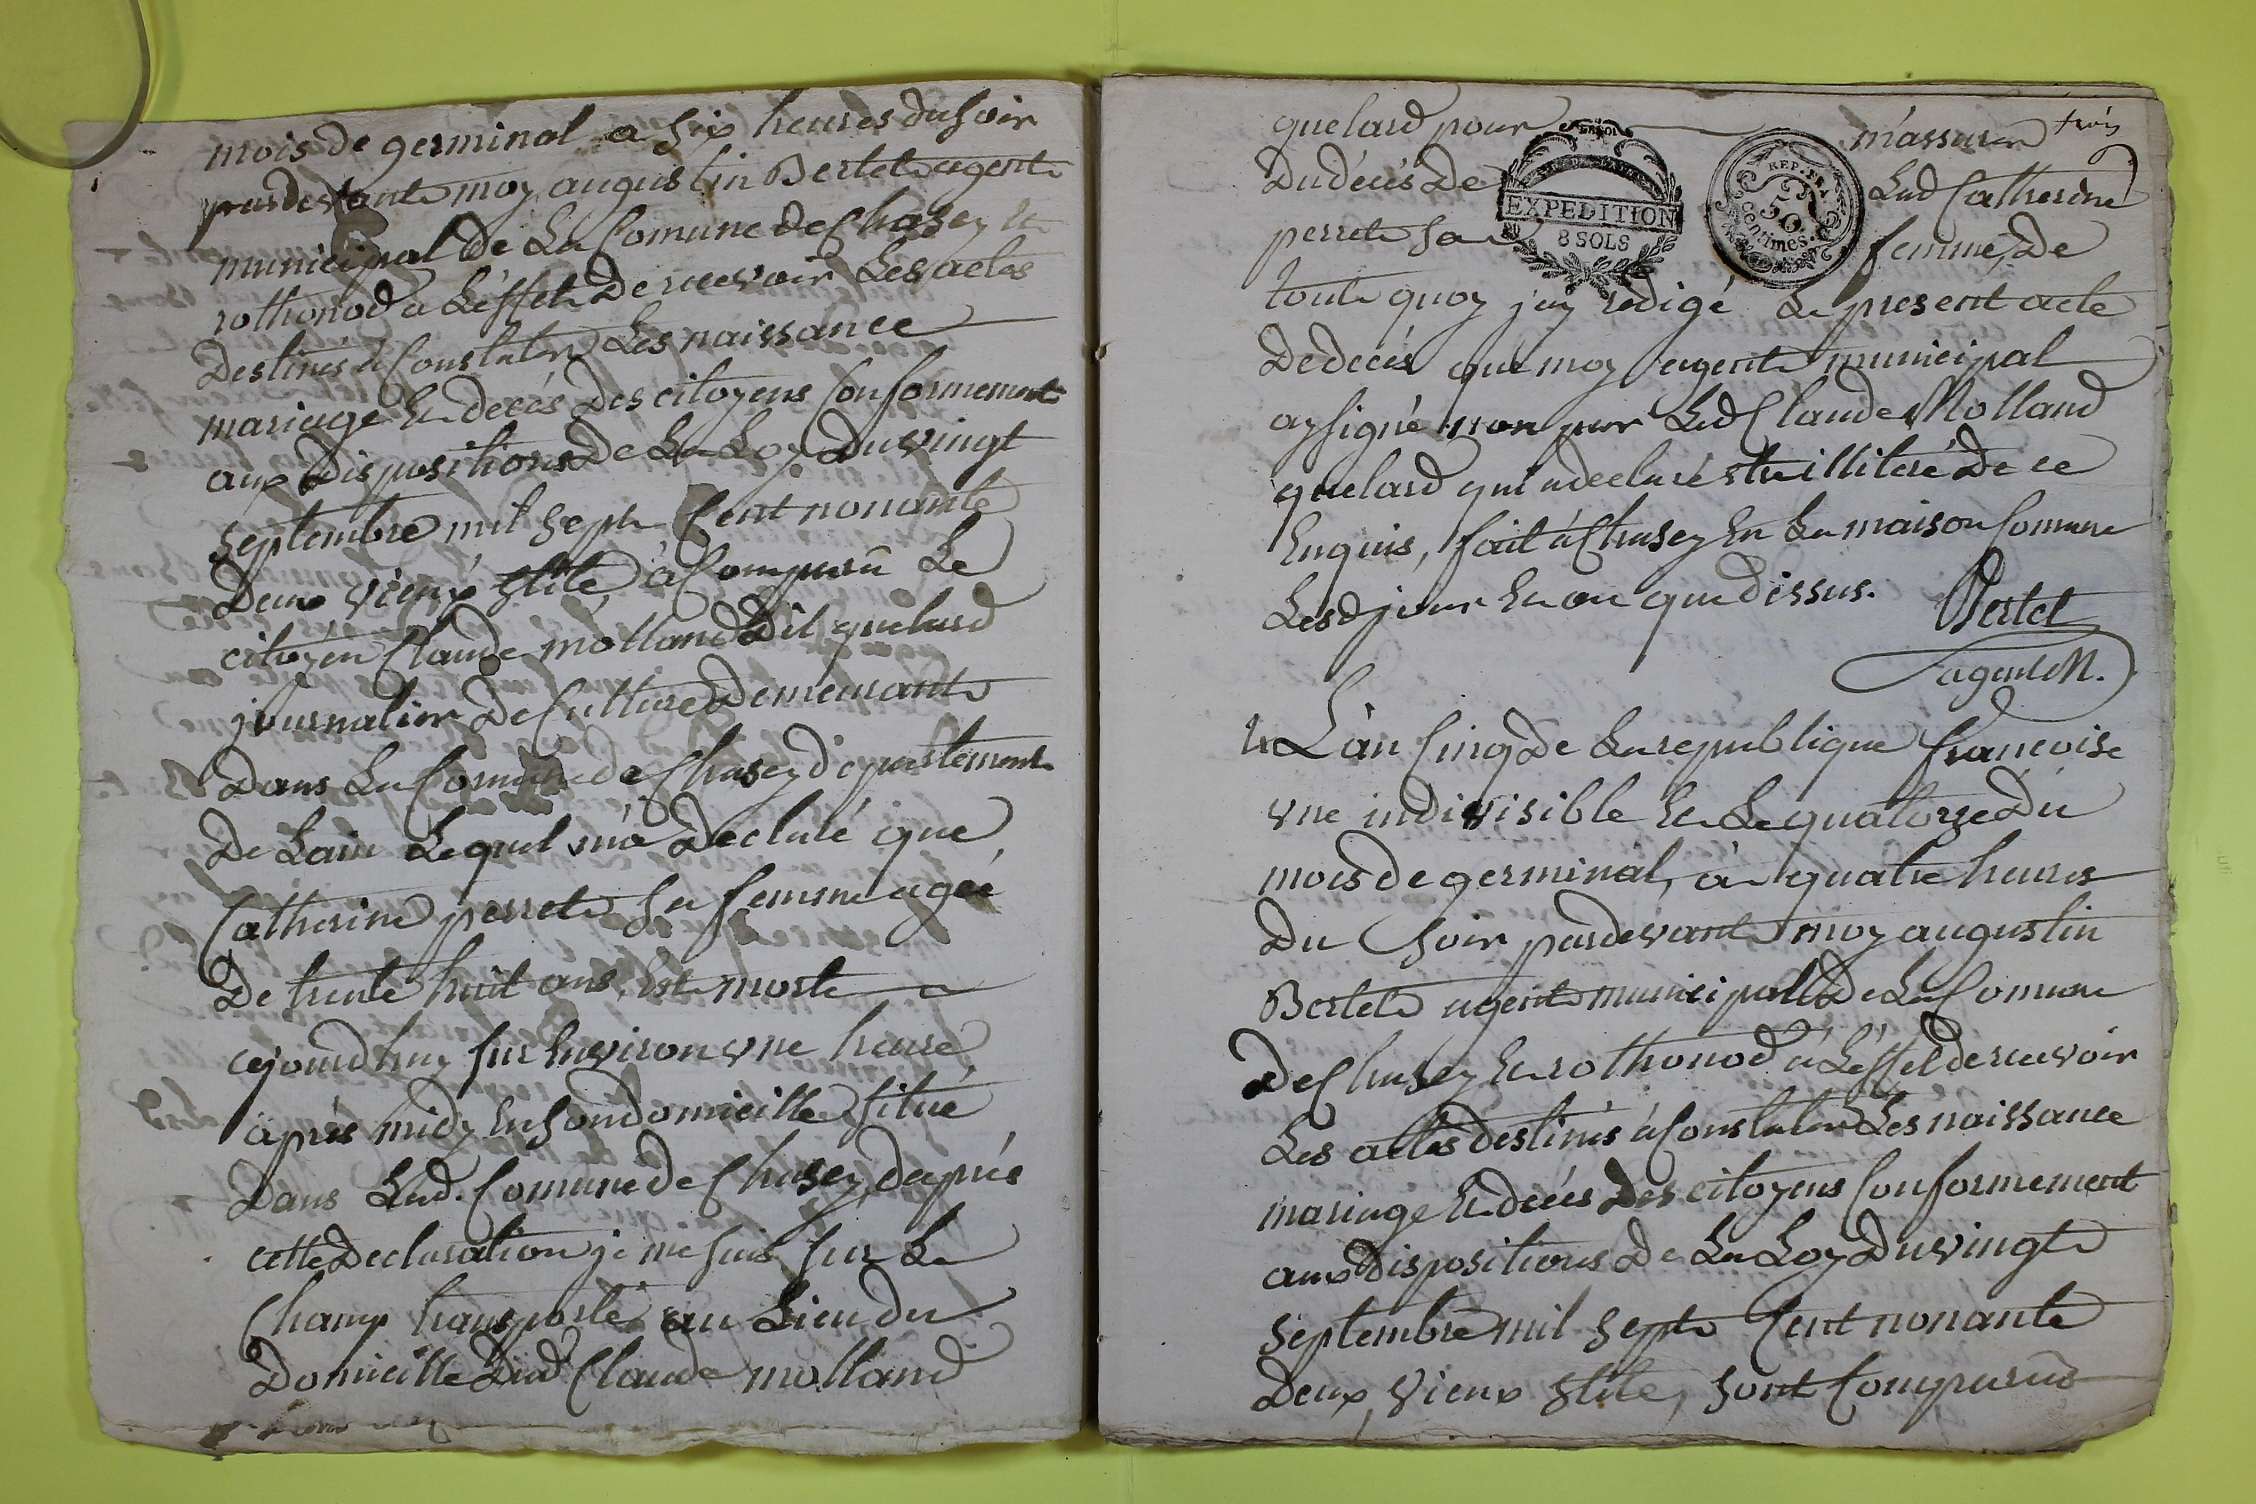 mois de germinal a six heures du soir
pardevant moy augustin Bertet agent
municipal de La Comune de Chasey et
rothonod a L'éffet De recevoir Les actes
Destinés à Constater Les naissance
mariage Et decés Des citoyens Conformement
aux Dispositions De La Loy Du vingt
septembre mil sept Cent nonante
Deux vieux stile à Comparû Le
citoyén Claude mólland Dit quelard
journalier De Culture Demeurant
Dans La Comune de Chasey département
De Lain Lequel m'a Declaré que
Catherine perret sa femme agée
De trente huit ans, Est morte
cejourdhuy sur Environ vne heure
aprés midy En son domicille situé
Dans Lad. Comune de Chasey, daprés
cette Declaration je me suis sur Le
Champ transporté au Lieu du
Domicille Dud Claude molland
trois
quelard pour m'assurer
Du décés De Lad Catherine
perret sa femme, De
EXPEDITION
8 SOLS
REP. FRA.
50
Centimes.
tout quoy j'ay rédigé Le present acte
De decés que moy agent municipal
ay signé non par Led Claude Molland
quelard qui a declaré etre illiteré De ce
Enquis, fait à Chasey En La maison Comune
Lesd jour Et an que dissus.
Bertet
agent M.
L'an Cinq De La republique françoise
vne indivisible Et Le quatorze Du
mois de germinal, à quatre heures
Du Soir pardevant moy augustin
Bertet agent municipal De La Comune
De Chasey Et rothonod à L'éffet de recevoir
Les actes destinés à Constater Les naissance
mariage Et decés Des citoyens Conformement
aux Dispositions De La Loy Du vingt
septembre mil sept Cent nonante
Deux, vieux stile, sont Comparus